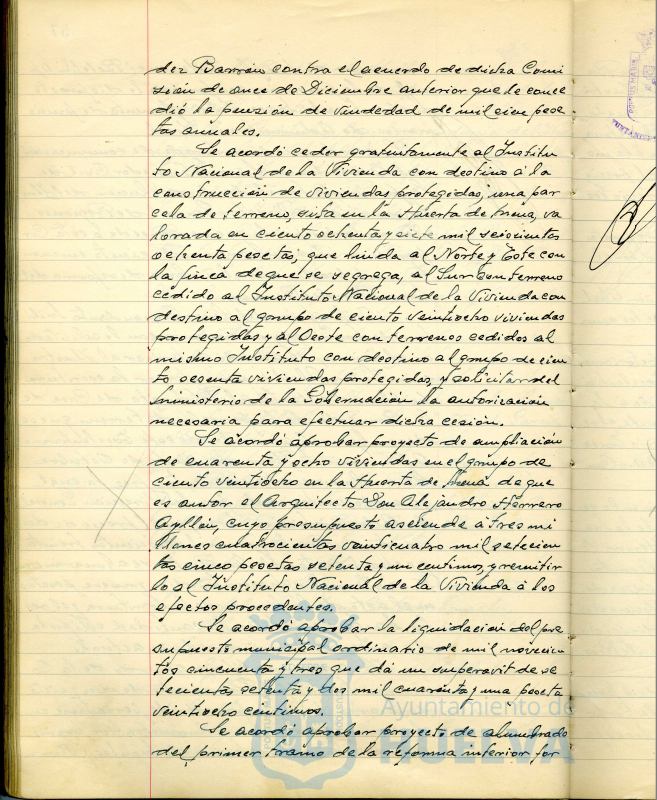 dez Barrón contra el acuerdo de dicha Comi
sión de once de Diciembre anterior que le conce
dió la pensión de viudedad de mil cien pese
tas anuales.
Se acordó ceder gratuitamente al Institu
to Nacional de la Vivienda con destino á la
construcción de viviendas protegidas, una par
cela de terreno, sita en la Huerta de Mena, va
lorada en ciento ochenta y siete mil seiscientas
ochenta pesetas, que linda al Norte y Este con
la finca de que se segrega, al Sur con terreno
cedido al Instituto Nacional de la Vivienda con
destino al grupo de ciento veintiocho viviendas
protegidas y al Oeste con terrenos cedidos al
mismo Instituto con destino al grupo de cien
to sesenta viviendas protegidas, y solicitar del
Ministerio de la Gobernación la autorización
necesaria para efectuar dicha cesión.
Se acordó aprobar proyecto de ampliación
de cuarenta y ocho viviendas en el grupo de
ciento veintiocho en la Huerta de Mena de que
es autor el Arquitecto Don Alejandro Herrero
Ayllón, cuyo presupuesto asciende á tres mi
llones cuatrocientas veinticuatro mil setecien
tas cinco pesetas setenta y un centimos, y remitir
lo al Instituto Nacional de la Vivienda á los
efectos procedentes.
Se acordó aprobar la liquidación del pre
supuesto municipal ordinario de mil novecien
tos cincuenta y tres que dá un superavit de se
tecientas setenta y dos mil cuarenta y una peseta
veintiocho centimos.
Ayuntamiento de
Se acordó aprobar proyecto de alumbrado
del primer tramo de la reforma interior for